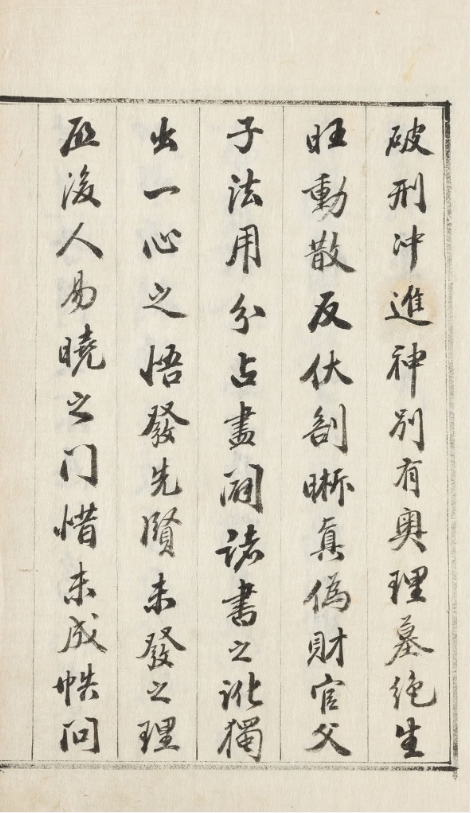 破刑冲進神別有奧理墓絕生
旺動散反伏剖晰真偽財官父
子法用分占盡闢諸書之訛獨
出一心之悟發先賢未發之理
啟後人易曉之门惜未成帙问